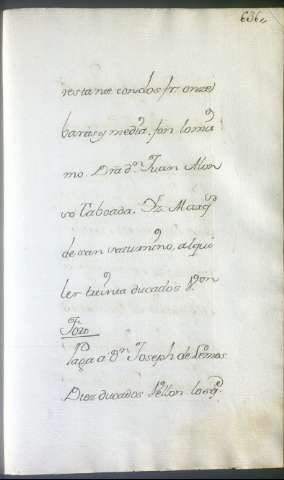 636
restante con dos fr. onze
baras y media, son lo mis
mo. Dra. dn. Juan Alon
so Taboada, Dz. Marqs
de san saturnino, alqui
ler treinta ducados Von
Foro
Paga a Dn. Joseph de Lemos
Diez ducados Vellon los qe.